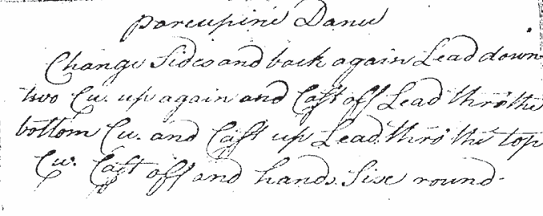 Porcupine Dance
Change Sides and back again Lead down
two Cu. up again and Cast off Lead thro' the
bottom Cu. and Cast up Lead thro' the top
Cu. Cast off and hands Six round